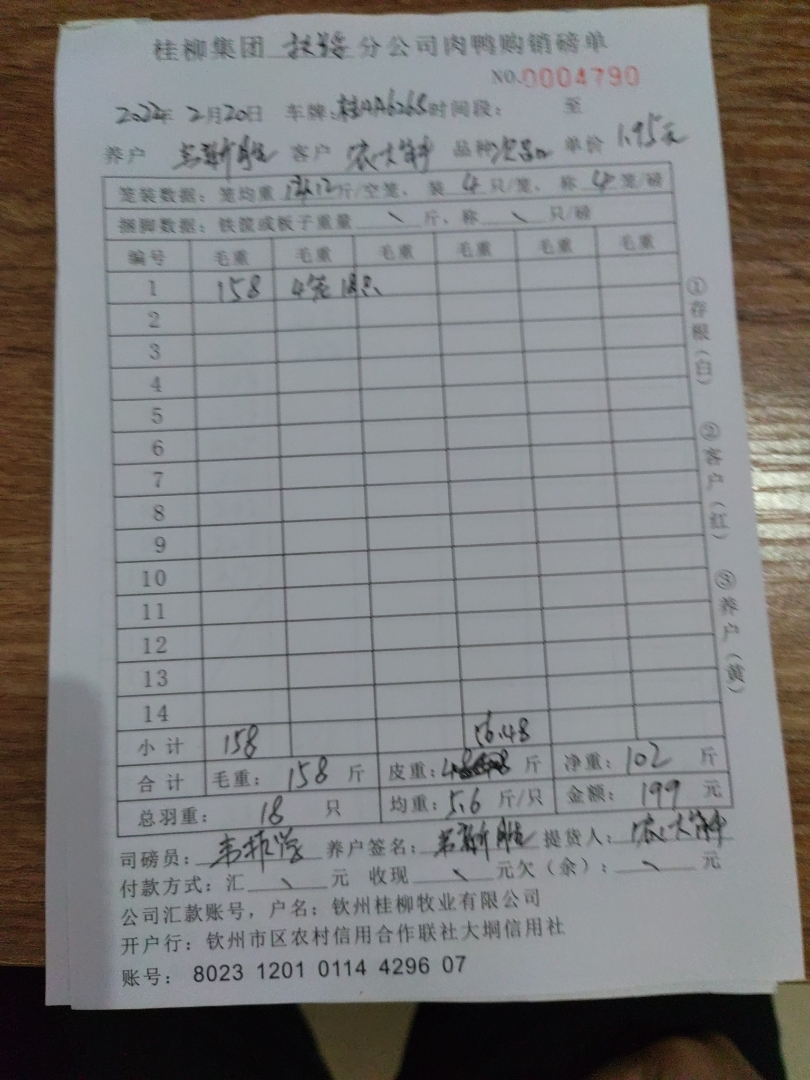 桂柳集团 扶绥 分公司肉鸭购销磅单
NO.0004790
2022年 2月20日 车牌:桂AA6265时间段: 至
养户 客户 农大锋 品种 次品 单价 1.95元
笼装数据:笼均重 14.12斤/空笼,装 4 只/笼,称 4 笼/磅
捆脚数据:铁筐或板子重量 \ 斤、称 \ 只/磅
编号 毛重 毛重 毛重 毛重 毛重 毛重
1 158 4笼 18只
2
3
4
5
6
7
8
9
10
11
12
13
14
小计 158 56.48
合计 毛重: 158 斤 皮重: 斤 净重: 102 斤
总羽重: 18 只 均重: 5.6 斤/只 金额: 199 元
司磅员: 养户签名: 提货人: 农大锋
付款方式:汇 \ 元 收现 \ 元欠(余): \ 元
公司汇款账号,户名:钦州桂柳牧业有限公司
开户行:钦州市区农村信用合作联社大垌信用社
账号: 8023 1201 0114 4296 07
①存根(白)
②客户(红)
③养户(黄)